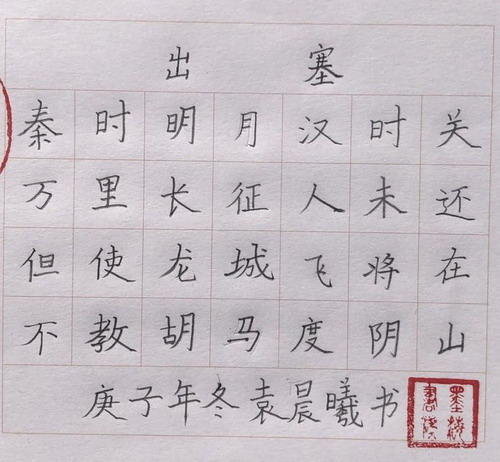 出塞
秦时明月汉时关
万里长征人未还
但使龙城飞将在
不教胡马度阴山
庚子年冬袁晨曦书